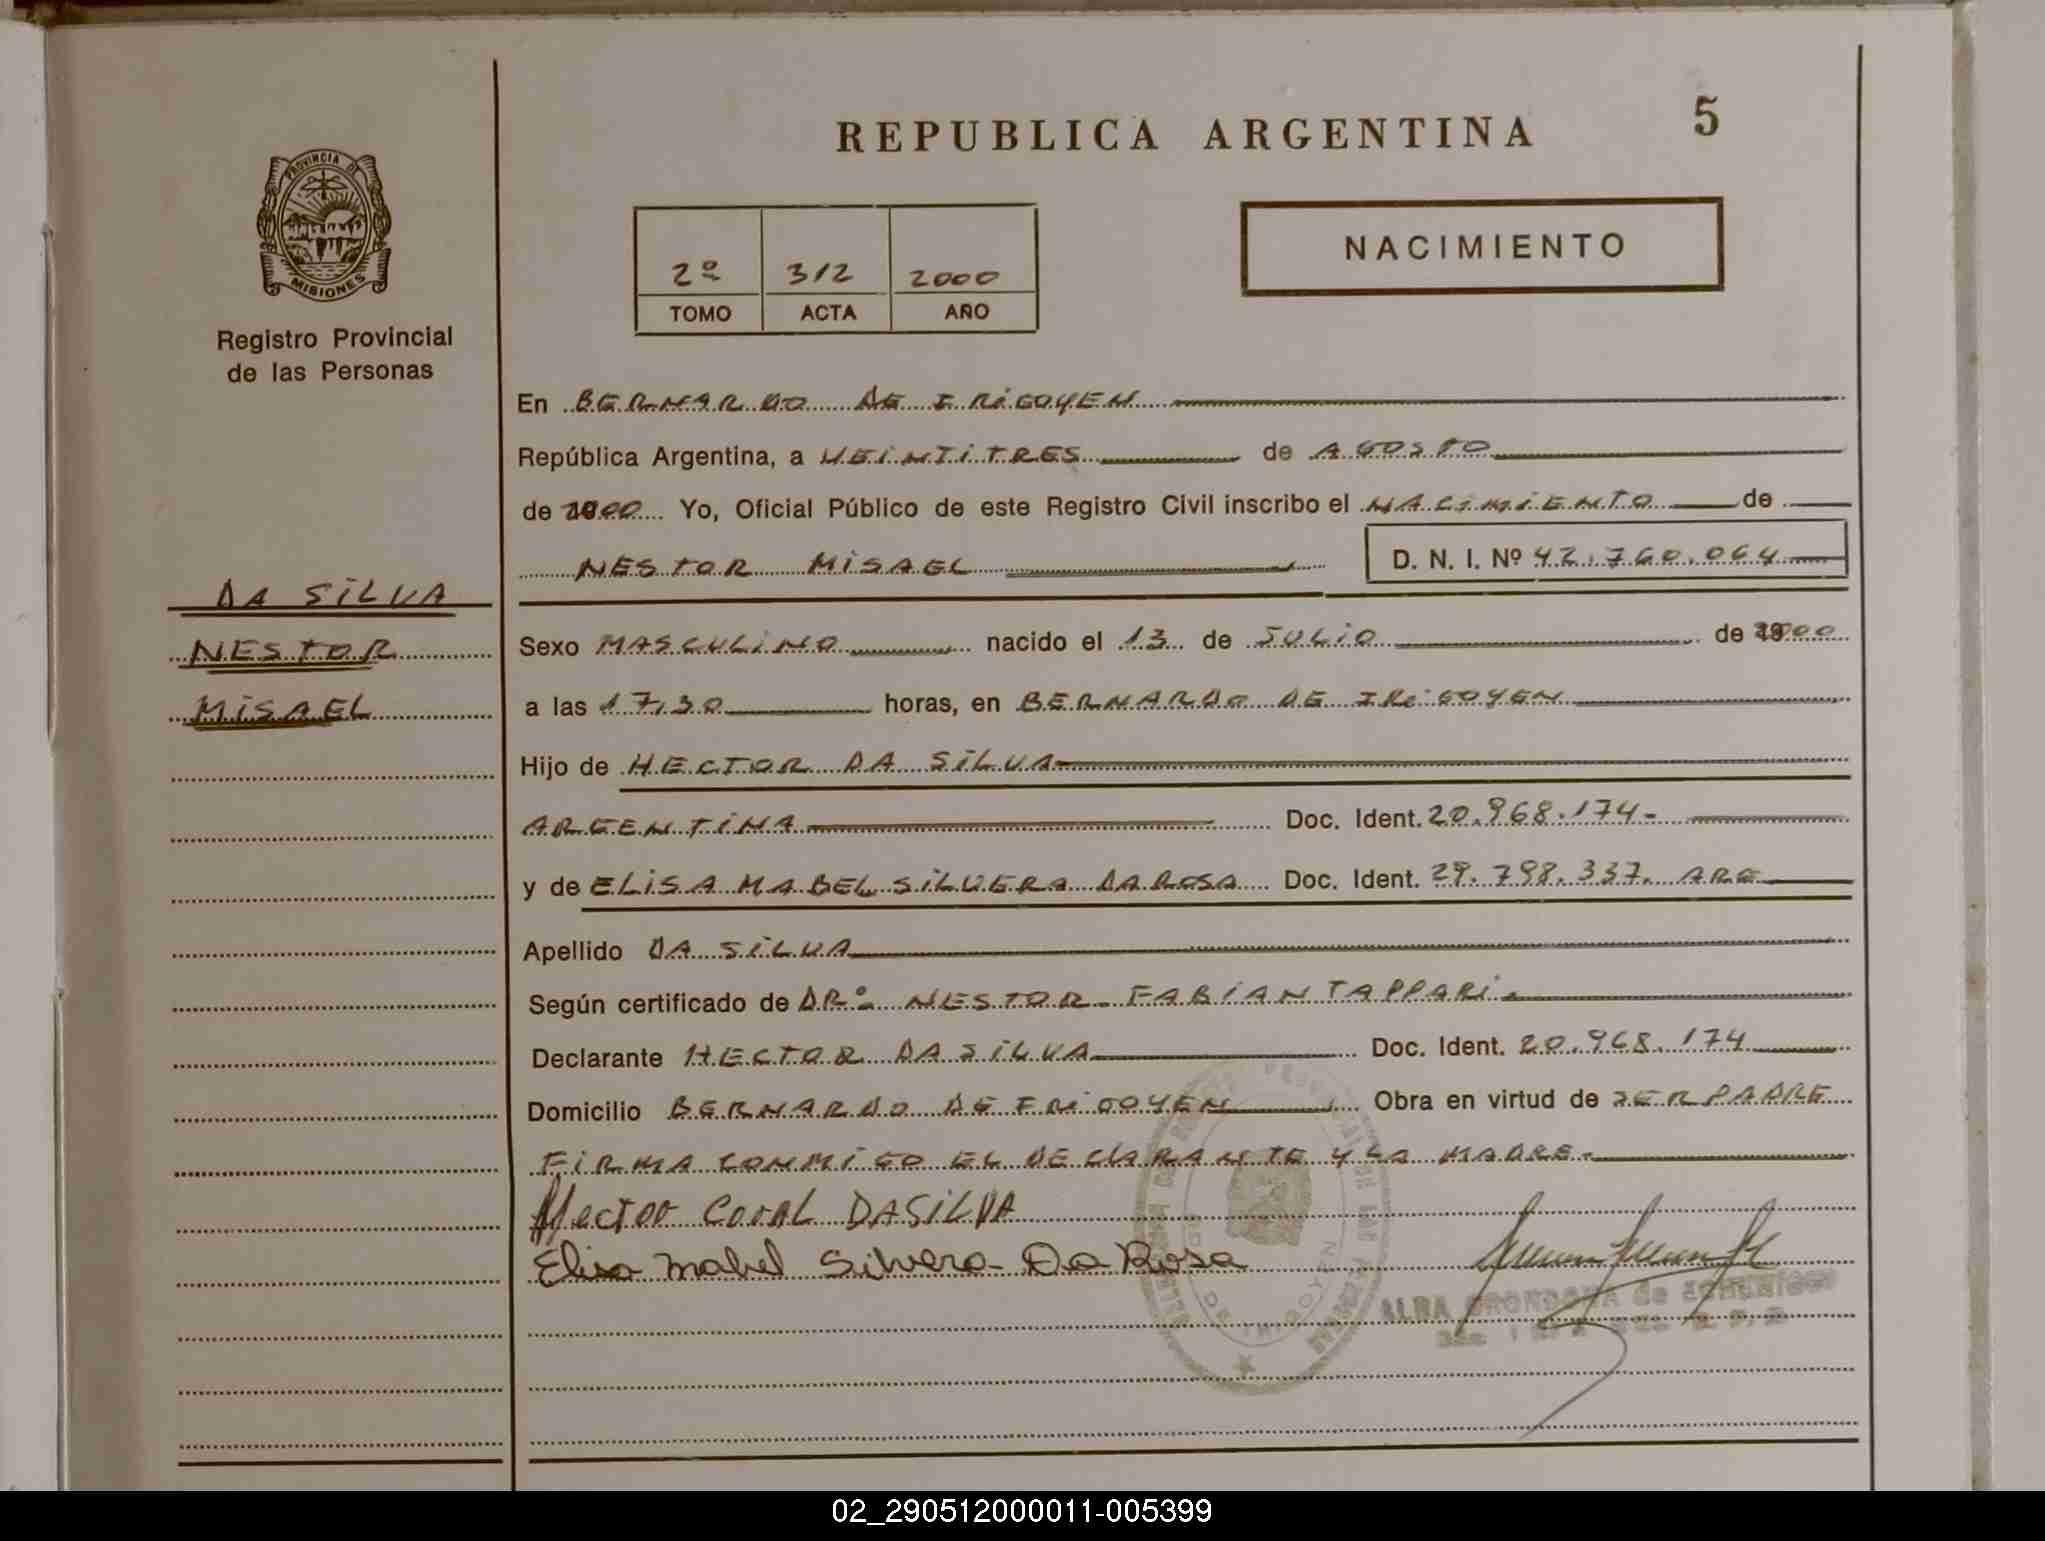 REPUBLICA ARGENTINA
5
PROVINCIA DE
MISIONES
Registro Provincial
de las Personas
2º 312 2000
TOMO ACTA AÑO
NACIMIENTO
En BERNARDO DE IRIGOYEN
República Argentina, a VEINTITRES de AGOSTO
de 2000 Yo, Oficial Público de este Registro Civil inscribo el NACIMIENTO de
NESTOR MISAEL D. N. I. Nº 42.760.064
DA SILVA
NESTOR
MISAEL
Sexo MASCULINO nacido el 13 de JULIO de 2000
a las 17,30 horas, en BERNARDO DE IRIGOYEN
Hijo de HECTOR DA SILVA
ARGENTINA Doc. Ident. 20.968.174-
y de ELISA MABEL SILVERA DA ROSA Doc. Ident. 29.798.337. ARG
Apellido DA SILVA
Según certificado de DRº NESTOR FABIAN TAPPARI.
Declarante HECTOR DA SILVA Doc. Ident. 20.968.174
Domicilio BERNARDO DE IRIGOYEN Obra en virtud de SER PADRE
FIRMA CONMIGO EL DECLARANTE Y LA MADRE.
Hector DASILVA
Elisa Mabel Silvera Da Rosa
ALBA de
DE IRIGOYEN
02_290512000011-005399